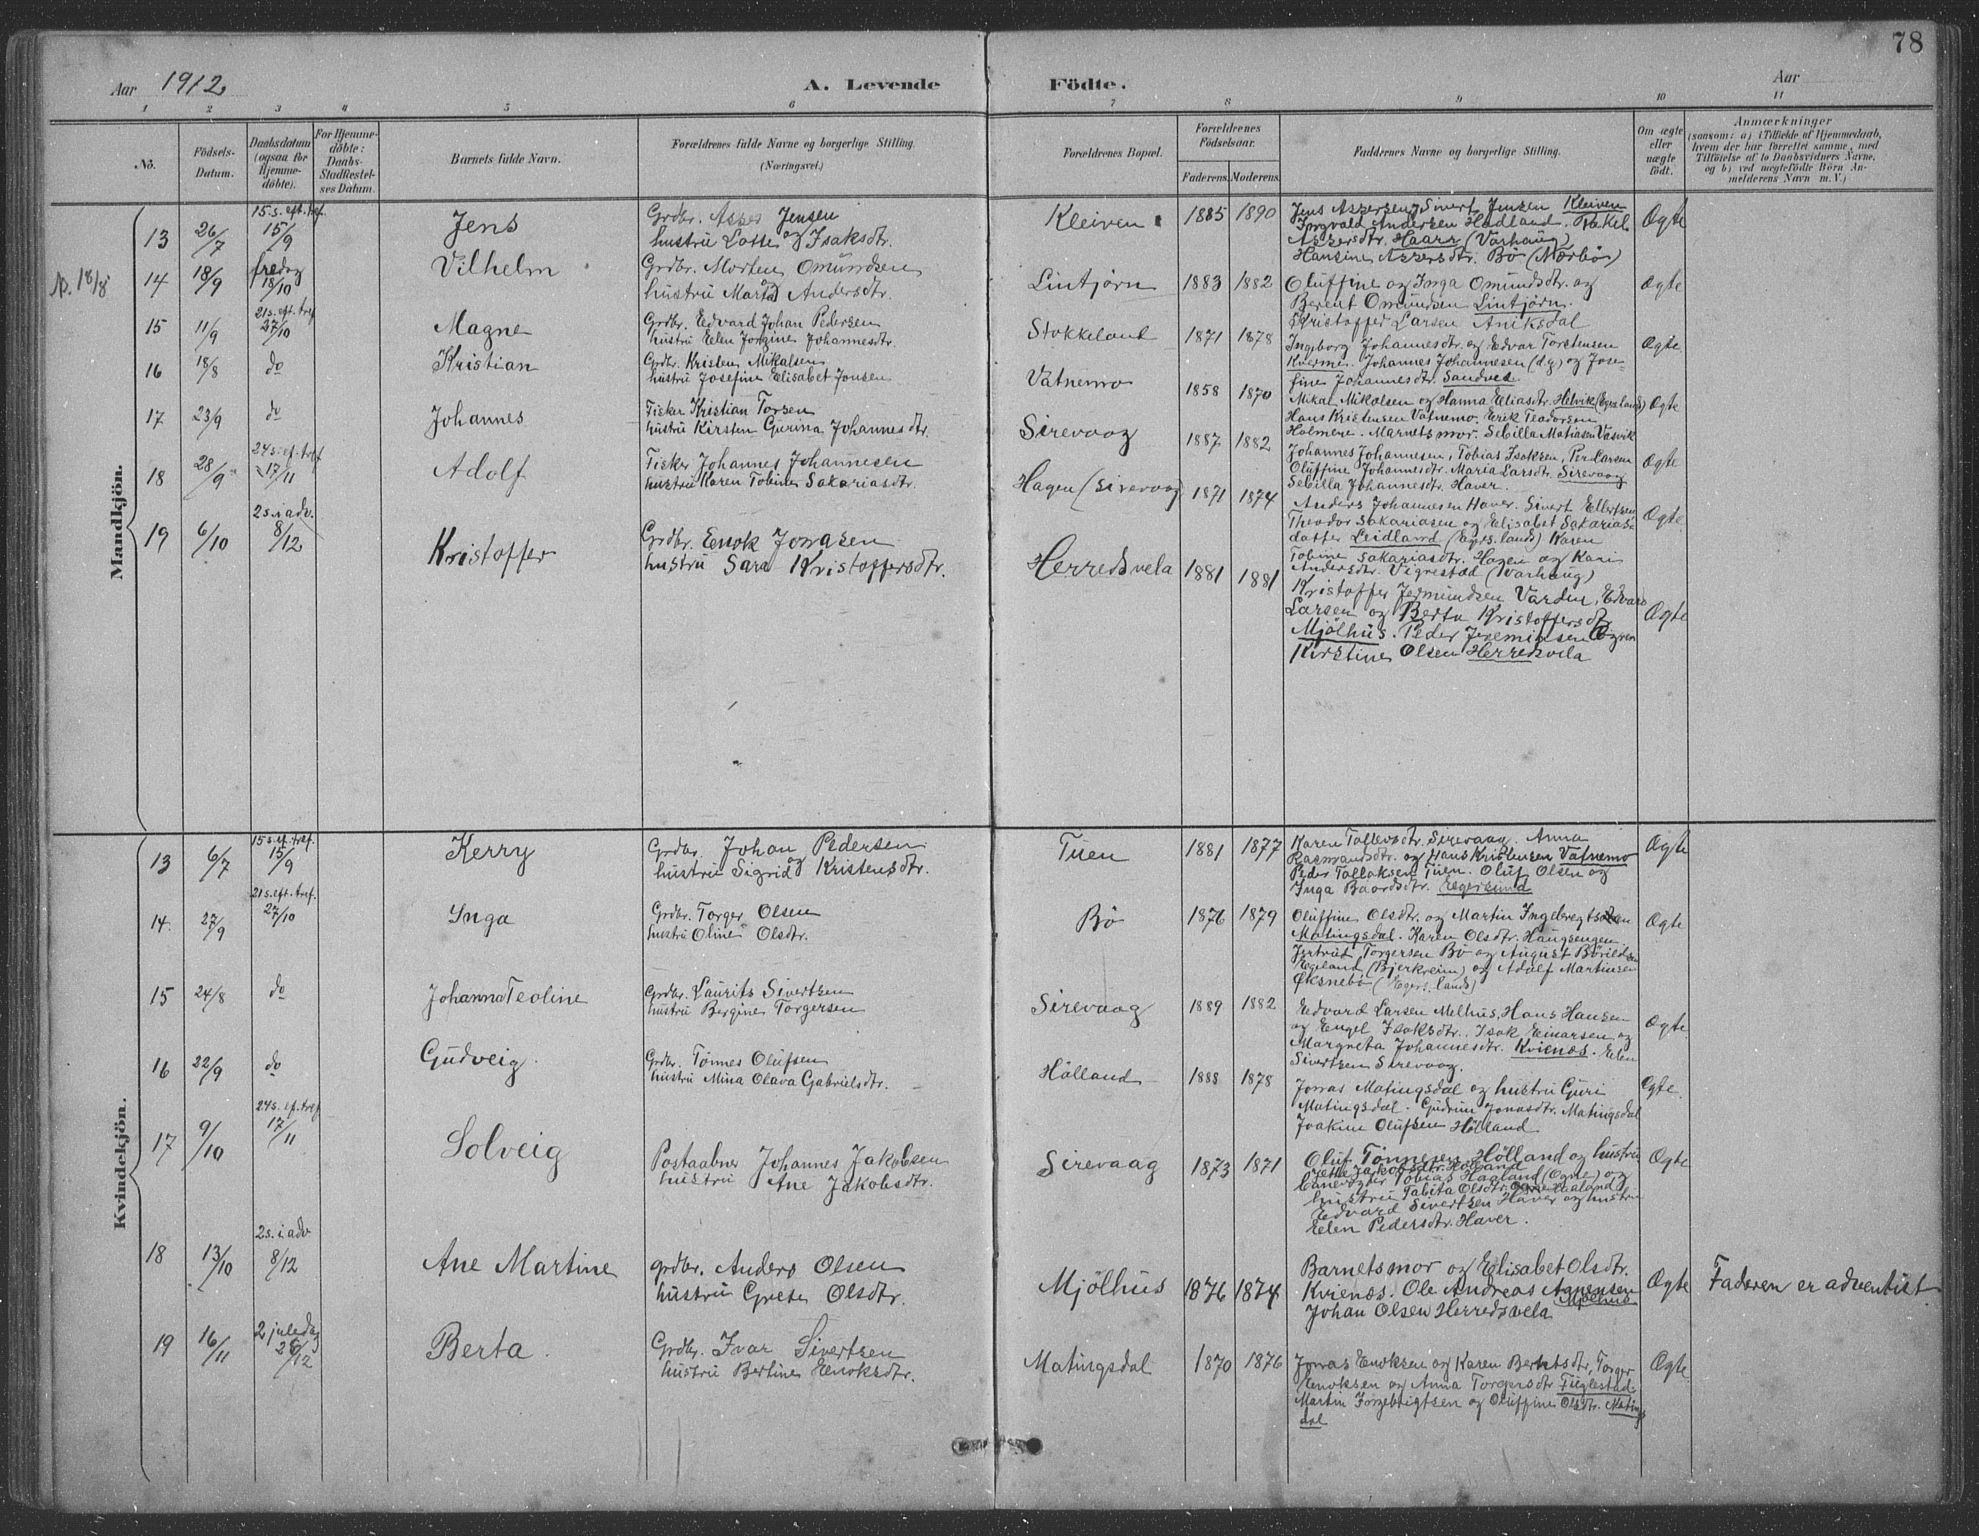 78
Aar 1912. A. Levende Födte. Aar
1 2 3 4 5 6 7 8 9 10 11
No.
Födsels-Datum.
Daabsdatum (ogsaa for Hjemme-döbte).
For Hjemme-döbte: Daabs-Stadfæstelses Datum.
Barnets fulde Navn.
Forældrenes fulde Navne og borgerlige Stilling. (Næringsvei.)
Forældrenes Bopæl.
Forældrenes Födselsaar. Faderens. Moderens.
Faddernes Navne og borgerlige Stilling.
Om ægte eller uægte födt.
Anmærkninger
(saasom: a) i Tilfælde af Hjemmedaab,
hvem der har forrettet samme, med
Tilföielse af to Daabsvidners Navne,
og b) ved uægtefödte Börn An-
melderens Navn m. V.)
Mandkjön.
13 26/7 15 s. eft. tref. 15/9 Jens
Grdbr. Asser Jensen
og hustru Lotte Isaksdtr.
Kleiven 1885 1890
Jens Assersen, Sivert Jensen Kleiven
Ingvald Andersen Hadland. Rakel
Assersdtr. Haarr (Varhaug)
Hansine Assersdtr. Bö (Nærbö)
Ægte
N. 18/8
14 18/9 fredag 18/10 Vilhelm
Grdbr. Morten Omundsen
og hustru Marta Andersdtr.
Lintjørn 1883 1882
Oluffine og Inga Omundsdtr. og
Berent Omundsen Lintjørn.
Kristoffer Larsen Aniksdal
Ægte
15 11/9 21 s. eft. tref 27/10 Magne
Grdbr. Edvard Johan Pedersen
hustru Elen Jorgine Johannesdtr.
Stokkeland 1871 1878
Ingeborg Johannesdtr. og Edvar Torstensen
Kverme. Johannes Johannesen (d.y.) og Jose-
fine Johannesdtr. Sandve.
Ægte
16 18/8 do Kristian
Grdbr. Kristen Mikalsen
hustru Josefine Elisabet Jonsen
Vatnemo 1858 1870
Mikal Mikalsen og Hanna Eliasdtr. Helvik (Egersland)
Hans Kristensen Vatnemo. Erik Teodorsen
Holmene. Marnetsmor. Sebilla Matiasen Vasvik
Ægte
17 23/9 do Johannes
Fisker Kristian Torsen
hustru Kirsten Gurina Johannesdtr.
Sirevaag 1887 1882
Johannes Johannesen, Tobias Isaksen, Per Larsen
Oluffine Johannesdtr. Maria Larsdtr. Sirevaag
Sebilla Johannesdtr. Haver.
Ægte
18 28/9 24 s. ef. tref 17/11 Adolf
Fisker Johannes Johannesen
hustru Karen Tobine Sakariasdtr.
Hagen (Sirevaag 1871 1874
Anders Johannesen Haver. Sivert Ellertsen
Theodor Sakariasen og Elisabet Sakarias-
datter Leidland (Egers. lands) Karen
Tobine Sakariasdtr. Hagen og Kari
Andersdtr. Vigrestad (Varhaug)
Ægte
19 6/10 2 s. i adv. 8/12 Kristoffer
Grdbr. Enok Jonasen
hustru Sara Kristoffersdtr.
Herredsvela 1881 1881
Kristoffer Jermundsen Varden, Edvard
Larsen og Berta Kristoffersdtr
Mjølhus. Peder Jeremiasen
Kirstine Olsen Herredsvela
Ægte
Kvindekjön.
13 6/7 15 s. ef. tref. 15/9 Kerry
Grdbr. Johan Pedersen
og hustru Sigrid Kristensdtr.
Tuen 1881 1877
Karen Tollevsdtr. Sirevaag, Anna
Rasmusdtr. og Hans Kristensen Vatnemo
Peder Tollaksen Tuen. Oluf Olsen og
Inga Baardsdtr. Egersund
Ægte
14 27/9 21 s. eft. tref. 27/10 Inga
Grdbr. Torger Olsen
hustru Oline Olsdtr.
Bö 1876 1879
Oluffine Olsdtr. og Martin Ingebregtsen
Matingsdal. Karen Olsdtr. Haugsengen
Jertrud Torgersen Bö og August Börildsen
Egeland (Bjerkreim) og Adolf Martinsen
Øksnebö (Egers. lands)
Ægte
15 24/8 do Johanna Teoline
Grdbr. Laurits Sivertsen
hustru Bergine Torgersen
Sirevaag 1889 1882
Edvard Larsen Melhus, Hans Hansen
og Engel Isaksdtr. Isak Einarsen og
Margreta Johannesdtr. Kvienes. Elen
Sivertsen Sirevaag.
Ægte
16 22/9 do Gudveig
Grdbr. Tønnes Olufsen
hustru Mina Olava Gabrielsdtr.
Hölland 1888 1878
Jonas Matingsdal og hustru Guri
Matingsdal. Gudrun Jonasdtr. Matingsdal
Joakim Olufsen Hölland
Ægte
17 9/10 24 s. ef. tref 17/11 Solveig
Postaabner Johannes Jakobsen
hustru Ane Jakobsdtr.
Sirevaag 1873 1871
Oluf Tønnesen Hölland og hustru
Jette Jakobsdtr. Hölland
Tobias Haaland (Ogne) og
hustru Tabita Olsdtr. Haaland
Edvard Sivertsen Haver og hustru
Elen Pedersdtr. Haver.
Ægte
18 13/10 2 s. i adv 8/12 Ane Martine
grdbr. Anders Olsen
hustru Grete Olsdtr.
Mjölhus 1876 1874
Barnetsmor og Elisabet Olsdtr.
Kvienes. Ole Andreas Agnensen Mjølhus
Johan Olsen Herredsvela
Ægte
Faderen er adventist
19 16/11 2 juledag 26/12 Berta
Grdbr. Ivar Sivertsen
hustru Bertine Enoksdtr.
Matingsdal 1870 1876
Jonas Enoksen og Karen Berntsdtr, Torger
Enoksen og Anna Torgersdtr Fuglestad.
Martin Ingebrigtsen og Oluffine Olsdtr. Matings
dal
Ægte